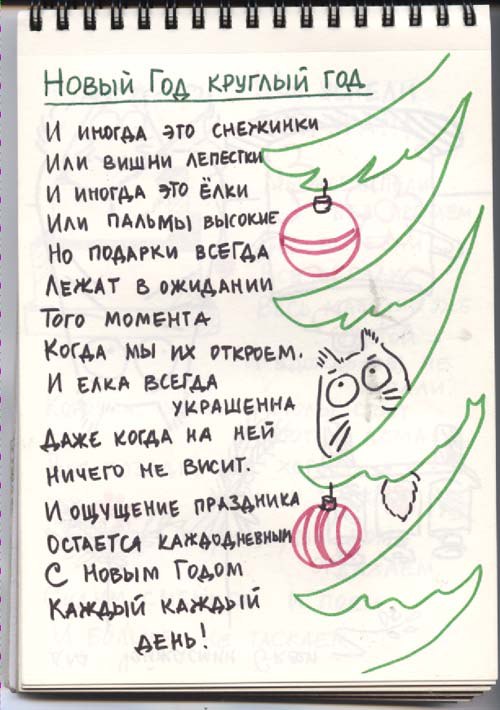 Новый Год круглый год
И иногда это снежинки
Или вишни лепестки
И иногда это ёлки
Или пальмы высокие
Но подарки всегда
Лежат в ожидании
Того момента
Когда мы их откроем.
И елка всегда
украшенна
Даже когда на ней
ничего не висит.
И ощущение праздника
остается каждодневным
С Новым Годом
каждый каждый
день!